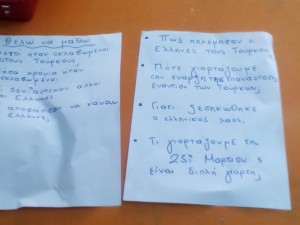 Θέλω να μάθω
ήταν σκλαβωμένοι
στους Τούρκους,
χρόνια ήταν
σκλαβωμένοι
δεν άντεχαν άλλο
Έλληνες
αποφάσισαν να κάνουν
Έλληνες
• Πώς πολέμησαν οι
Έλληνες τους Τούρκους,
• Πότε γιορτάζουμε
την έναρξη της επανάστασης
εναντίον των Τούρκων,
• Γιατί ξεσηκώθηκε
ο ελληνικός λαός.
• Τι γιορτάζουμε την
25η Μαρτίου
είναι διπλή γιορτή,